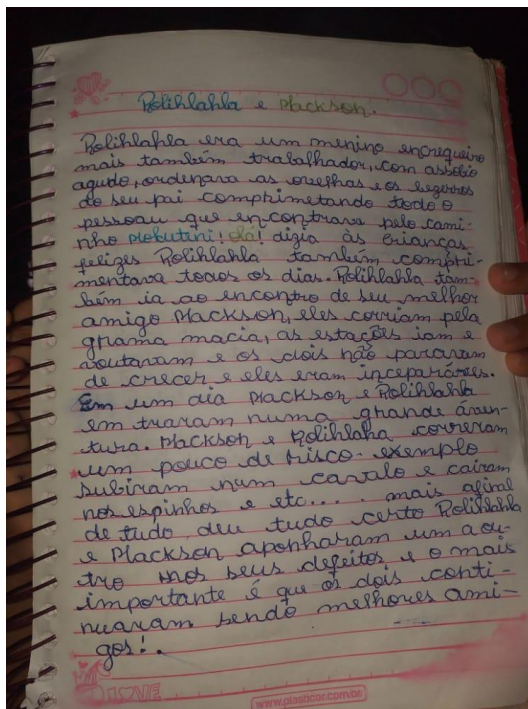 Rolihlahla e Mackson.
Rolihlahla era um menino encrequeiro
mais também trabalhador, com assobio
agudo, ordenava as ovelhas e os bezerros
do seu pai comprimetando todo o
pessoau que encontrava pelo cami-
nho Molutini! olá! dizia às crianças
felizes Rolihlahla também compri-
mentava todos os dias. Rolihlahla tam-
bém ia ao encontro de seu melhor
amigo Mackson, eles corriam pela
grama macia, as estações iam e
voutavam e os dois não pararam
de crecer e eles eram inceparáveis.
Em um dia Mackson e Rolihlahla
em traram numa grande áven-
tura. Mackson e Rolihlaha correram
um pouco de risco. exemplo
subiram num cavalo e cairam
nos espinhos e etc.... mais afinal
de tudo deu tudo certo Rolihlahla
e Mackson aponharam um a ou-
tro nos seus defeitos e o mais
importante é que os dois conti-
nuaram sendo melhores ami-
gos!.
LOVE
www.plasticor.com.br